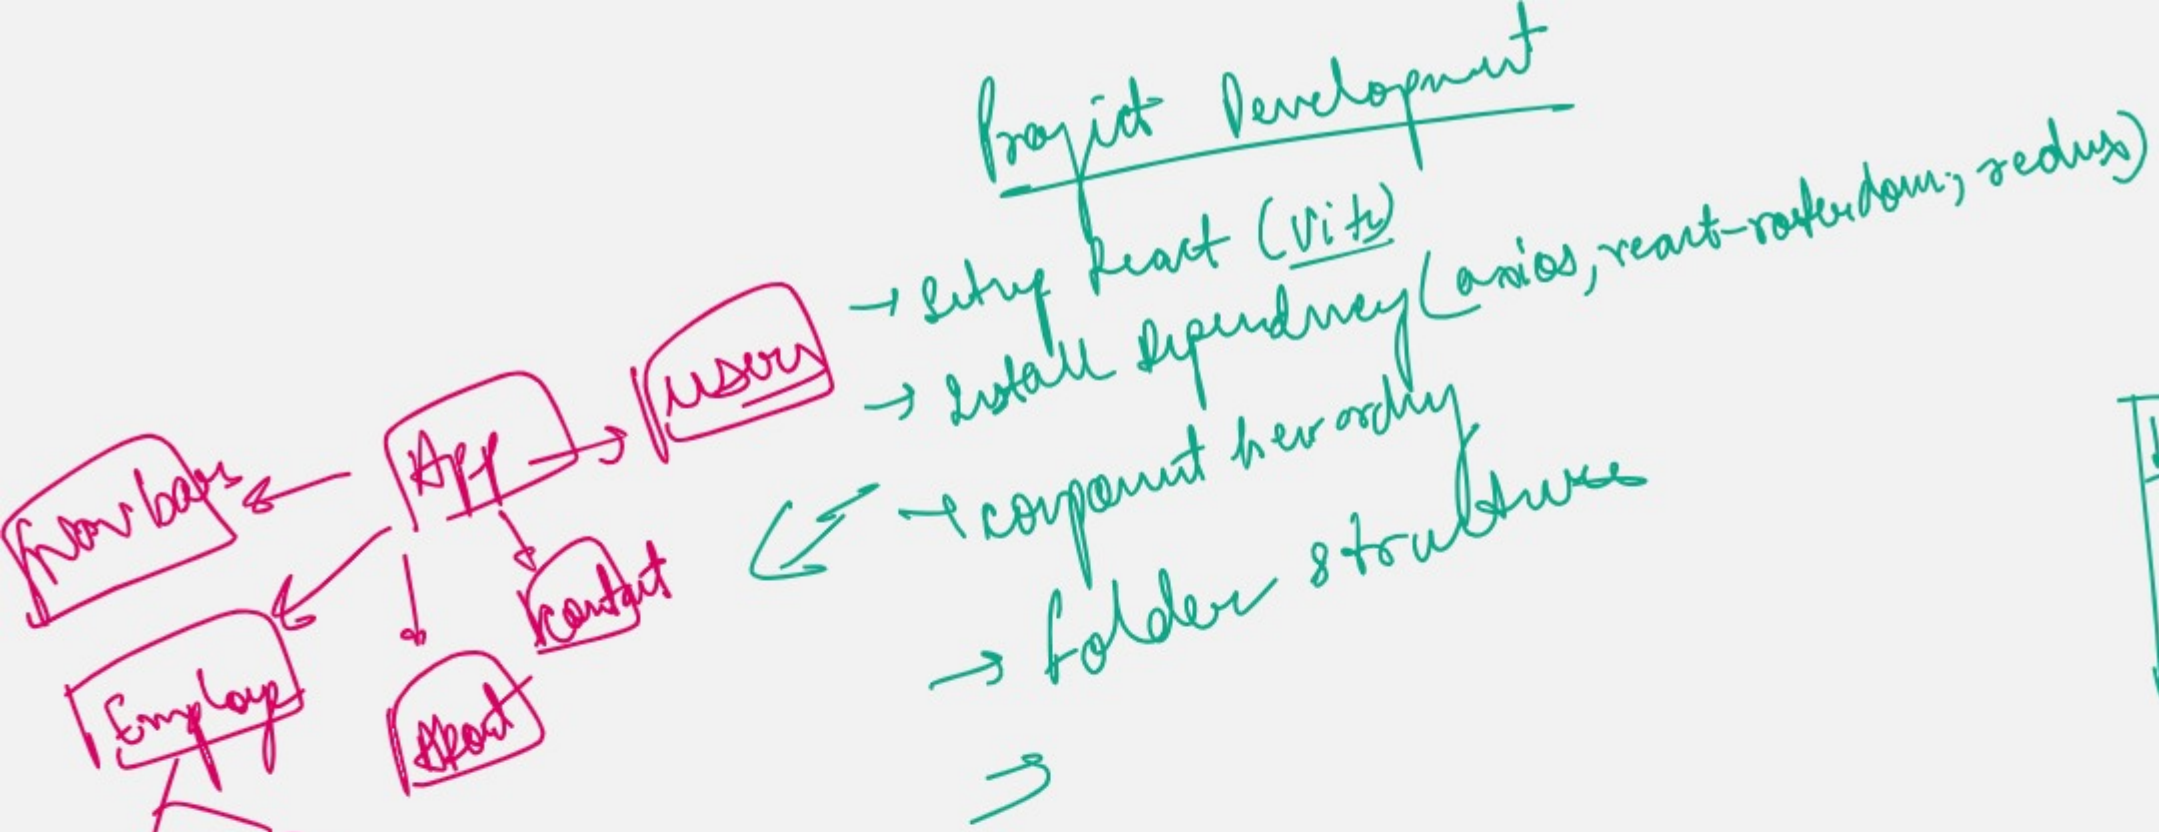 Project Development
→ Setup React (Vite)
→ Install Dependency (axios, react-router-dom, redux)
→ component hierarchy
→ folder structure
users
App
Navbar
contact
Employ
About